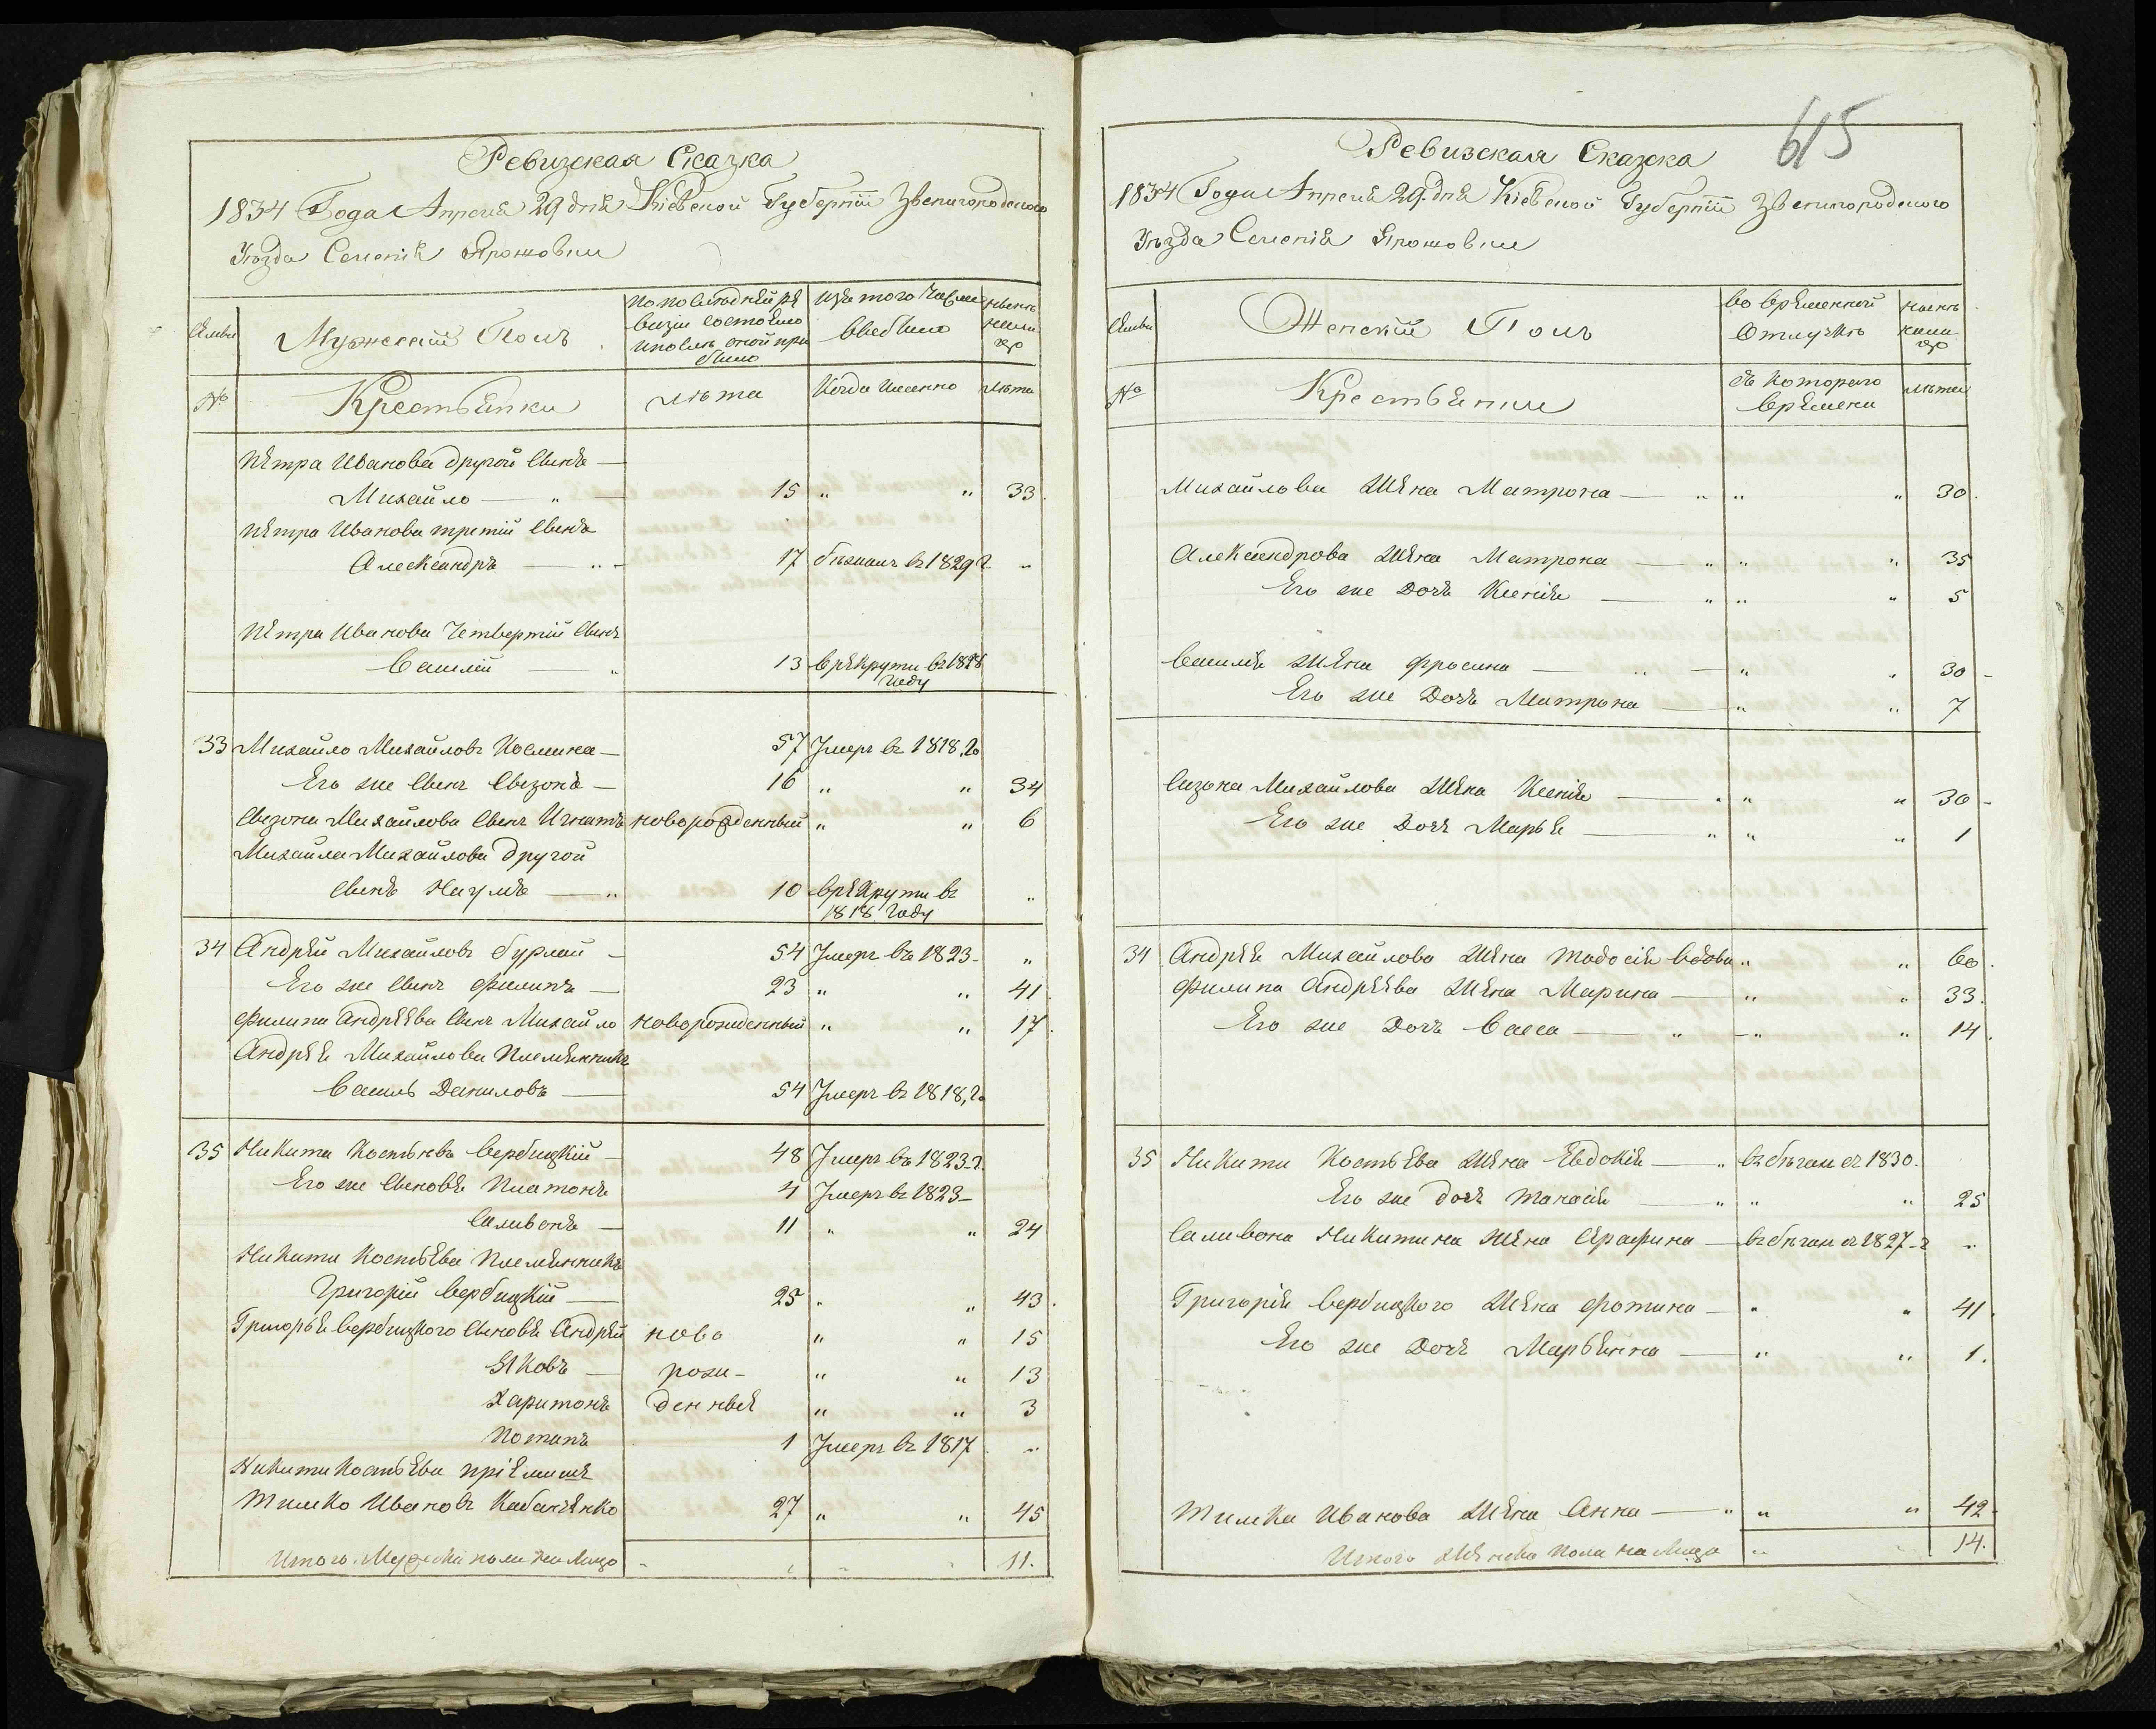 Ревизская Сказка
1834 Года Апреля 29 дня Кіевской Губерніи Звенигородского
Уѣзда Селенія Ярошовки
Мужескій Полъ
по последней ре
визіи состояло
и после оной при
было
изъ того числа
выбыло
ныне
на ли
цо
№
Крестьянки
лѣта
Когда именно
лѣта
Пѣтра Иванова другой сынъ
Михайло 15 " " 33
Пѣтра Иванова третій сынъ
Александръ 17 бѣжалъ въ 1829 г "
Пѣтра Иванова Четвертій сынъ
Василій 13 в рѣкрути въ 1828
году
33 Михайло Михайловъ 57 Умеръ въ 1818, го
Его же сынъ Сызонъ 16 " " 34
Сызона Михайлова сынъ Игнатъ новорожденный " " 6
Михайла Михайлова другой
сынъ Наумъ 10 в рѣкрути въ "
1818 году
34 Андрѣй Михайловъ бурлай 54 Умеръ въ 1823 "
Его же сынъ Филипъ 23 " " 41
Филипа Андрѣева сынъ Михайло новорожденный " " 17
Андрѣя Михайлова племѣнникъ
Василь Даниловъ 54 Умеръ въ 1818, го
35 Никита Костѣевъ Вербицкій 48 Умеръ въ 1823 г.
Его же сыновья Платонъ 4 Умеръ въ 1823
Саливонъ 11 " " 24
Никиты Костьева племѣнникъ
Григорій Вербицкій 25 " " 43
Григорья Вербицкого сыновья Андрѣй ново " " 15
Яковъ рож- " " 13
Харитонъ денныя " " 3
Потапъ 1 Умеръ въ 1817 "
Никиты Костьева пріемышъ
Тимко Ивановъ Кабанѣнко 27 " " 45
Итого. Мужеска пола на лицо " " " " 11.
615
Ревизская Сказка
1834 Года Апреля 29. дня Кіевской Губерніи Звенигородского
Уѣзда Селенія Ярошовки
Женскій Полъ
Во времѣнной
Отлучкѣ
ныне
на ли
цо
№
Крестьянки
съ которого
времѣни
лѣта
Михайлова жѣна Матрона " " " 30
Александрова жѣна Матрона " " " 35
Его же дочь Ксенія " " " 5
Василя жѣна Фросина " " " 30
Его же дочь Матрона " " 7
Сизона Михайлова жѣна Ксенія " " " 30
Его же дочь Марья " " " 1
34 Андрѣя Михайлова жѣна Тодосія вдова " " 60
Филипа Андрѣева жѣна Марина " " 33.
Его же дочь Васса " " " 14.
35 Никиты Костьева жѣна Евдокія " въ бѣгахъ съ 1830.
Его же дочь " " " 25
Саливона Никитина жѣна въ бѣгахъ съ 1827 г "
Григорія Вербицкого жѣна Фотина " " 41.
Его же дочь Марьянна " " 1.
Тимка Иванова жѣна Анна " " " 42.
Итого жѣнска пола на лицо " " 14.